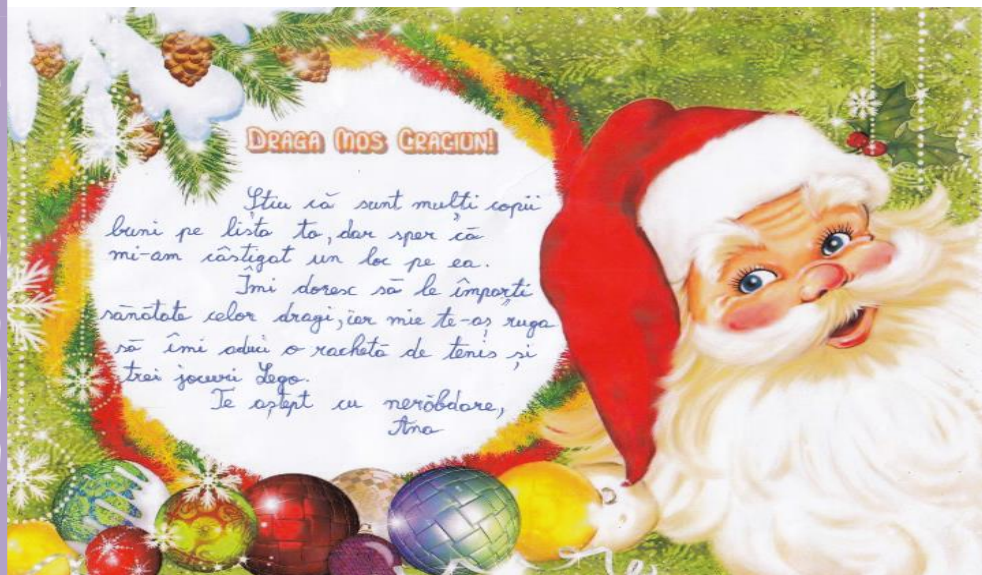 DRAGA MOS CRACIUN!
Știu că sunt mulți copii
buni pe lista ta, dar sper că
mi-am câștigat un loc pe ea.
Îmi doresc să le împarți
sănătate celor dragi, iar mie te-aș ruga
să îmi aduci o rachetă de tenis și
trei jocuri Lego.
Te aștept cu nerăbdare,
Ana